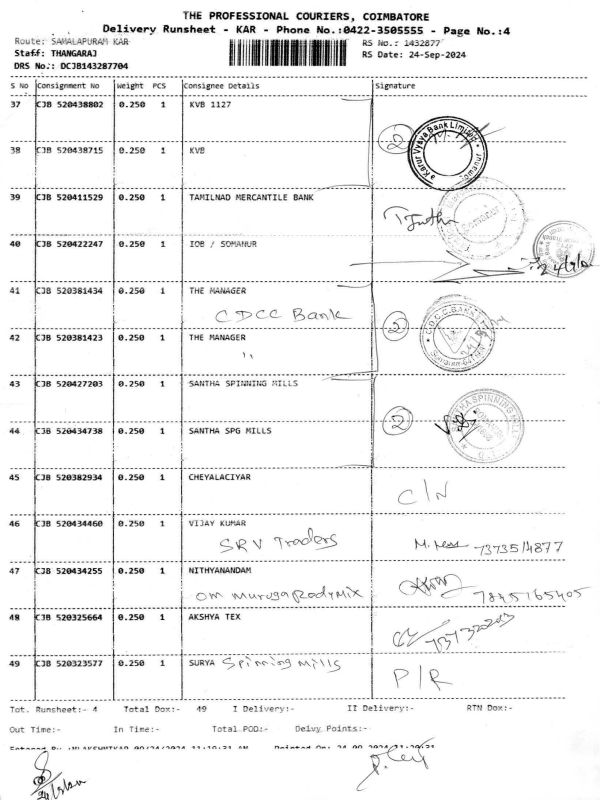 THE PROFESSIONAL COURIERS, COIMBATORE
Delivery Runsheet - KAR - Phone No.:0422-3505555 - Page No.:4
Route: SAMALAPURAM KAR RS No.: 1432877
Staff: THANGARAJ RS Date: 24-Sep-2024
DRS No.: DCJB143287704
S No Consignment No Weight PCS Consignee Details Signature
37 CJB 520438802 0.250 1 KVB 1127
2 Karur Vysya Bank Limited
38 CJB 520438715 0.250 1 KVB
39 CJB 520411529 0.250 1 TAMILNAD MERCANTILE BANK
40 CJB 520422247 0.250 1 IOB / SOMANUR
41 CJB 520381434 0.250 1 THE MANAGER
CDCC Bank
2 C.D.C.C. BANK
42 CJB 520381423 0.250 1 THE MANAGER
"
43 CJB 520427203 0.250 1 SANTHA SPINNING MILLS
2 SPINNING
44 CJB 520434738 0.250 1 SANTHA SPG MILLS
45 CJB 520382934 0.250 1 CHEYALACIYAR
C/N
46 CJB 520434460 0.250 1 VIJAY KUMAR
SRV Traders 7373514877
47 CJB 520434255 0.250 1 NITHYANANDAM
om murugaRadymix 7845165405
48 CJB 520325664 0.250 1 AKSHYA TEX
49 CJB 520323577 0.250 1 SURYA Spinning mills
P/R
Tot. Runsheet:- 4 Total Dox:- 49 I Delivery:- II Delivery:- RTN Dox:-
Out Time:- In Time:- Total POD:- Delvy Points:-